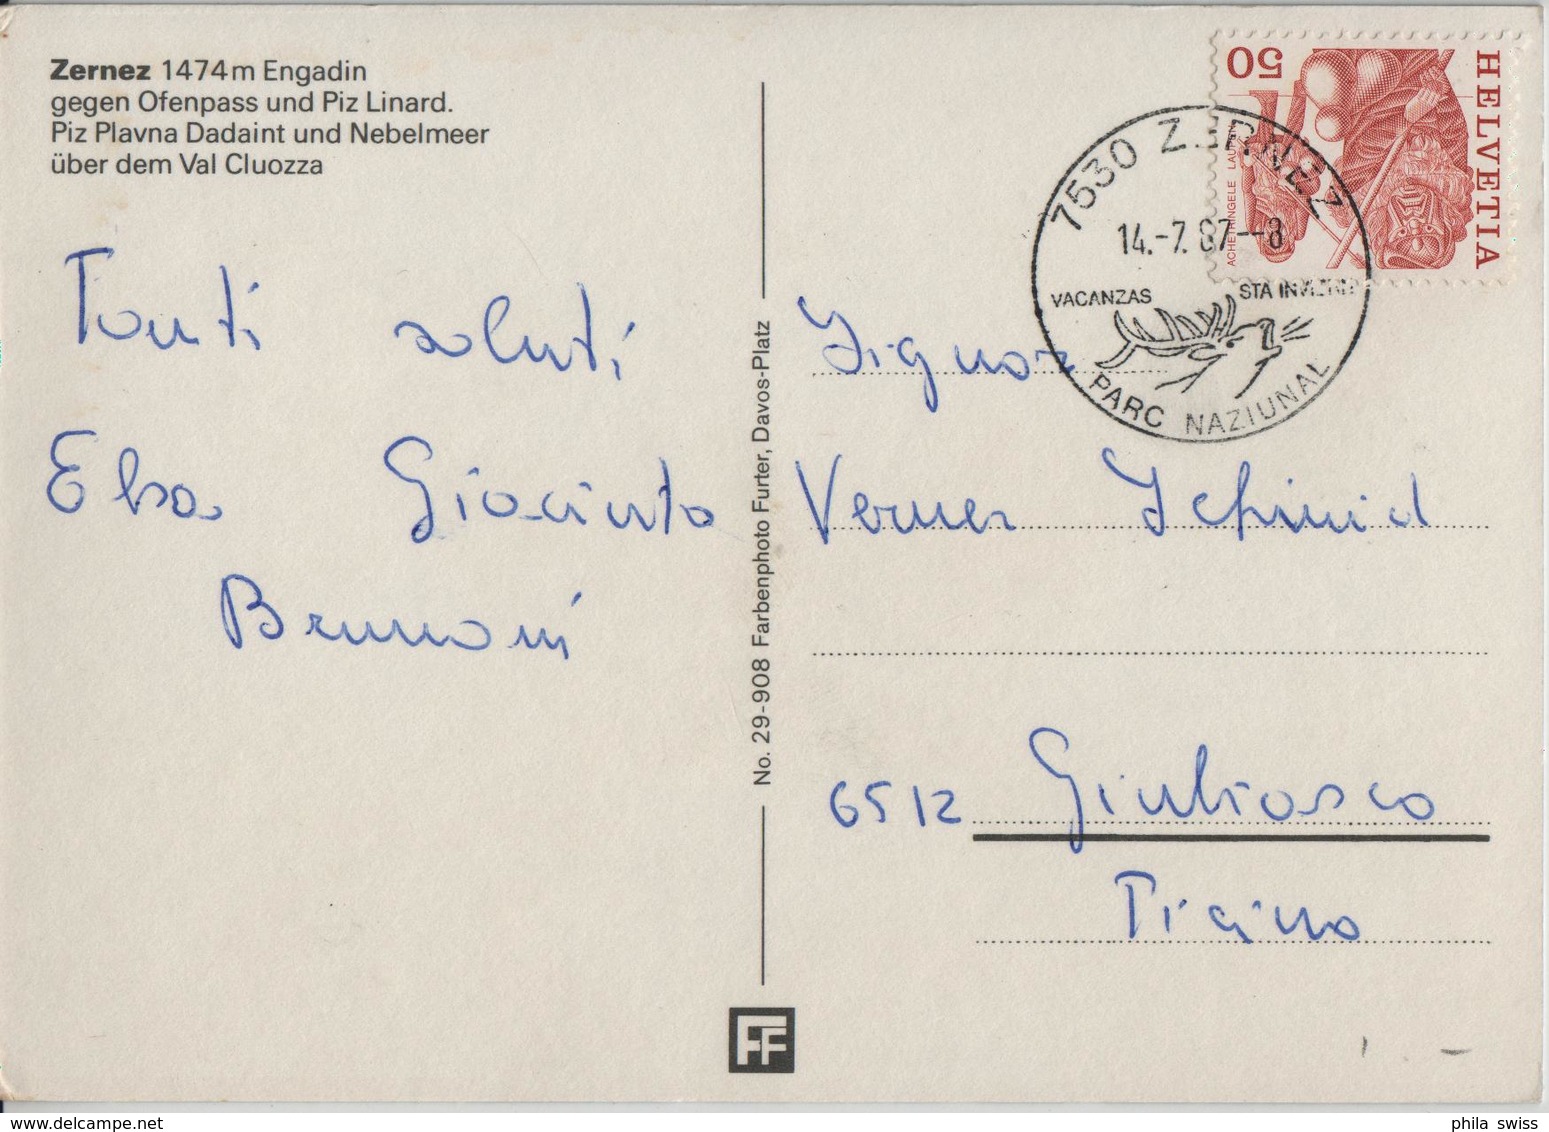 Zernez 1474m Engadin
gegen Ofenpass und Piz Linard.
Piz Plavna Dadaint und Nebelmeer
über dem Val Cluozza
Tanti saluti
Elsa Giacinto
Brunoni
No. 29-908 Farbenphoto Furter, Davos-Platz
FF
HELVETIA
50
ACHETRINGELE LAUPEN
7530 ZERNEZ
14.-7.87--8
VACANZAS STA INVIERN
PARC NAZIUNAL
Signor
Verner Schmid
6512 Giubiasco
Ticino
phila swiss
www.delcampe.net